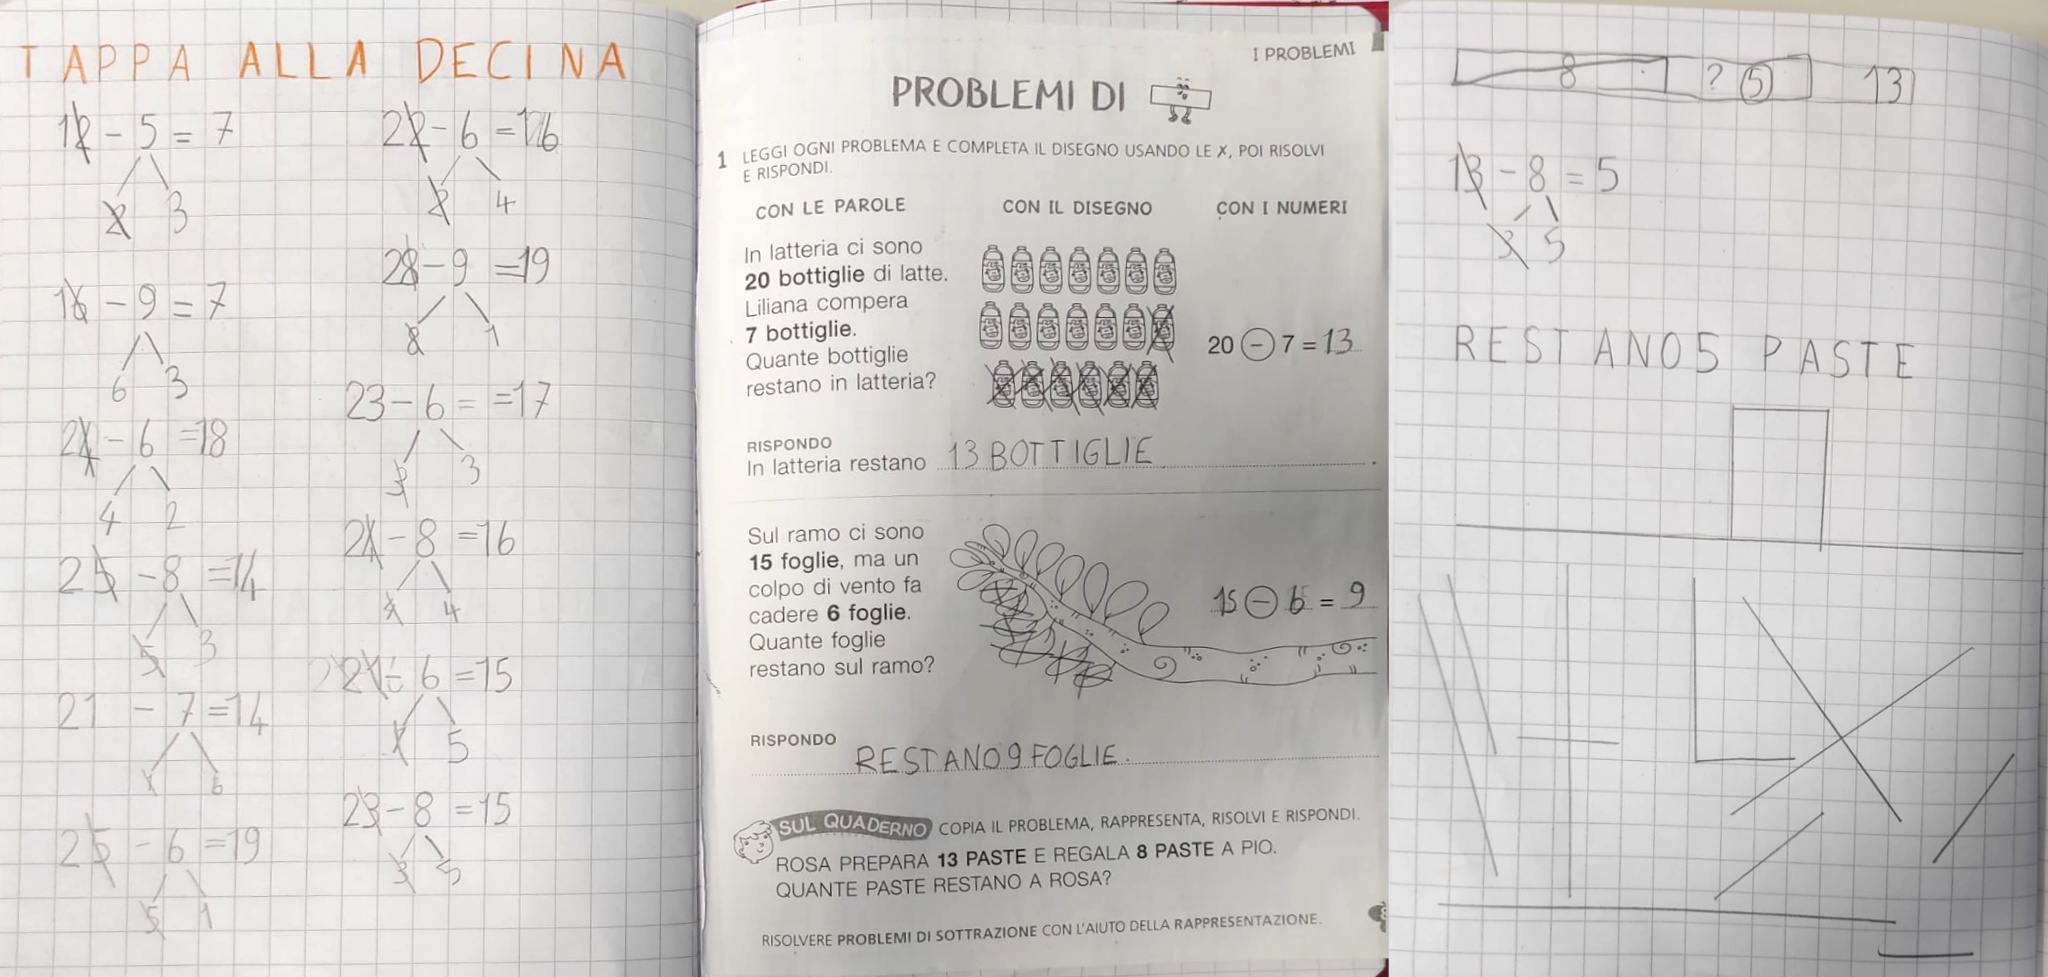 TAPPA ALLA DECINA
12 - 5 = 7
2 3
16 - 9 = 7
6 3
24 - 6 = 18
4 2
25 - 8 = 14
5 3
21 - 7 = 14
1 6
25 - 6 = 19
5 1
22 - 6 = 16
2 4
28 - 9 = 19
8 1
23 - 6 = = 17
3 3
24 - 8 = 16
4 4
21 - 6 = 15
1 5
23 - 8 = 15
3 5
I PROBLEMI
PROBLEMI DI
1 LEGGI OGNI PROBLEMA E COMPLETA IL DISEGNO USANDO LE X, POI RISOLVI
E RISPONDI.
CON LE PAROLE CON IL DISEGNO CON I NUMERI
In latteria ci sono
20 bottiglie di latte.
Liliana compera
7 bottiglie.
Quante bottiglie
restano in latteria?
20 - 7 = 13
RISPONDO
In latteria restano 13 BOTTIGLIE.
Sul ramo ci sono
15 foglie, ma un
colpo di vento fa
cadere 6 foglie.
Quante foglie
restano sul ramo?
15 - 6 = 9
RISPONDO
RESTANO 9 FOGLIE.
SUL QUADERNO COPIA IL PROBLEMA, RAPPRESENTA, RISOLVI E RISPONDI.
ROSA PREPARA 13 PASTE E REGALA 8 PASTE A PIO.
QUANTE PASTE RESTANO A ROSA?
RISOLVERE PROBLEMI DI SOTTRAZIONE CON L'AIUTO DELLA RAPPRESENTAZIONE.
8 ? 5 13
13 - 8 = 5
3 5
RESTANO 5 PASTE